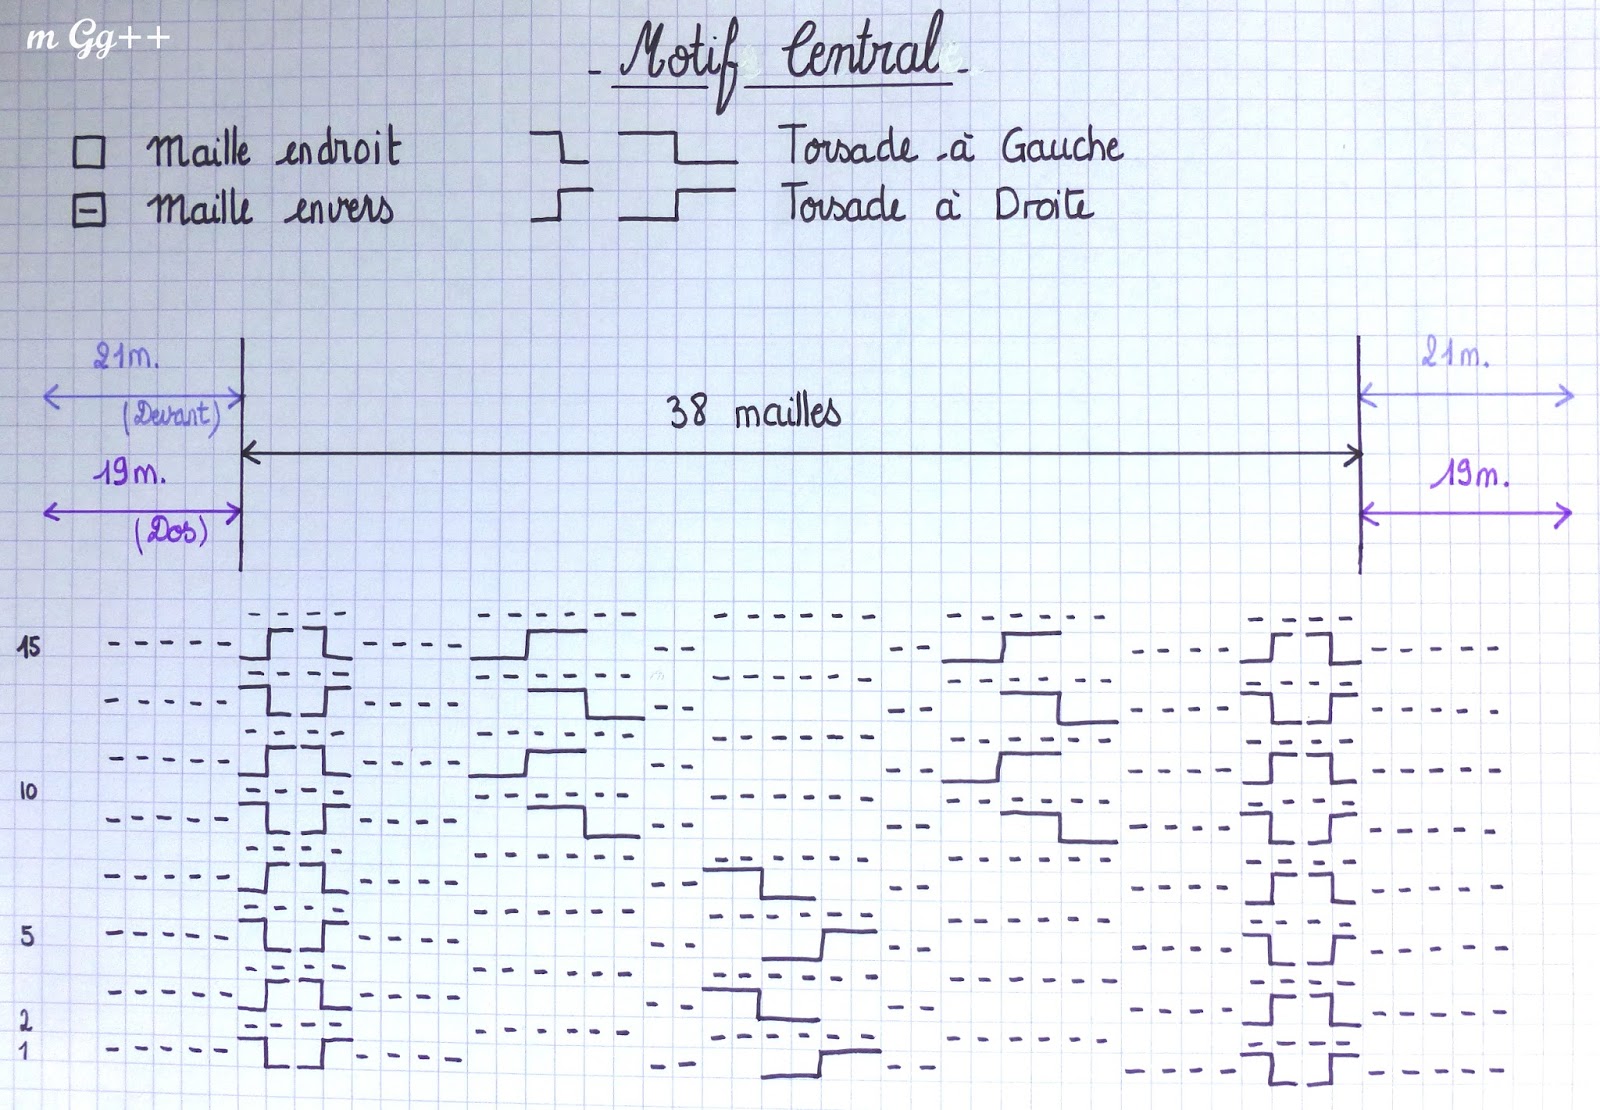 m Gg++
- Motif Central -
Maille endroit
Torsade à Gauche
Maille envers
Torsade à Droite
21m.
21m.
(Devant)
38 mailles
19m.
19m.
(Dos)
15
10
5
2
1